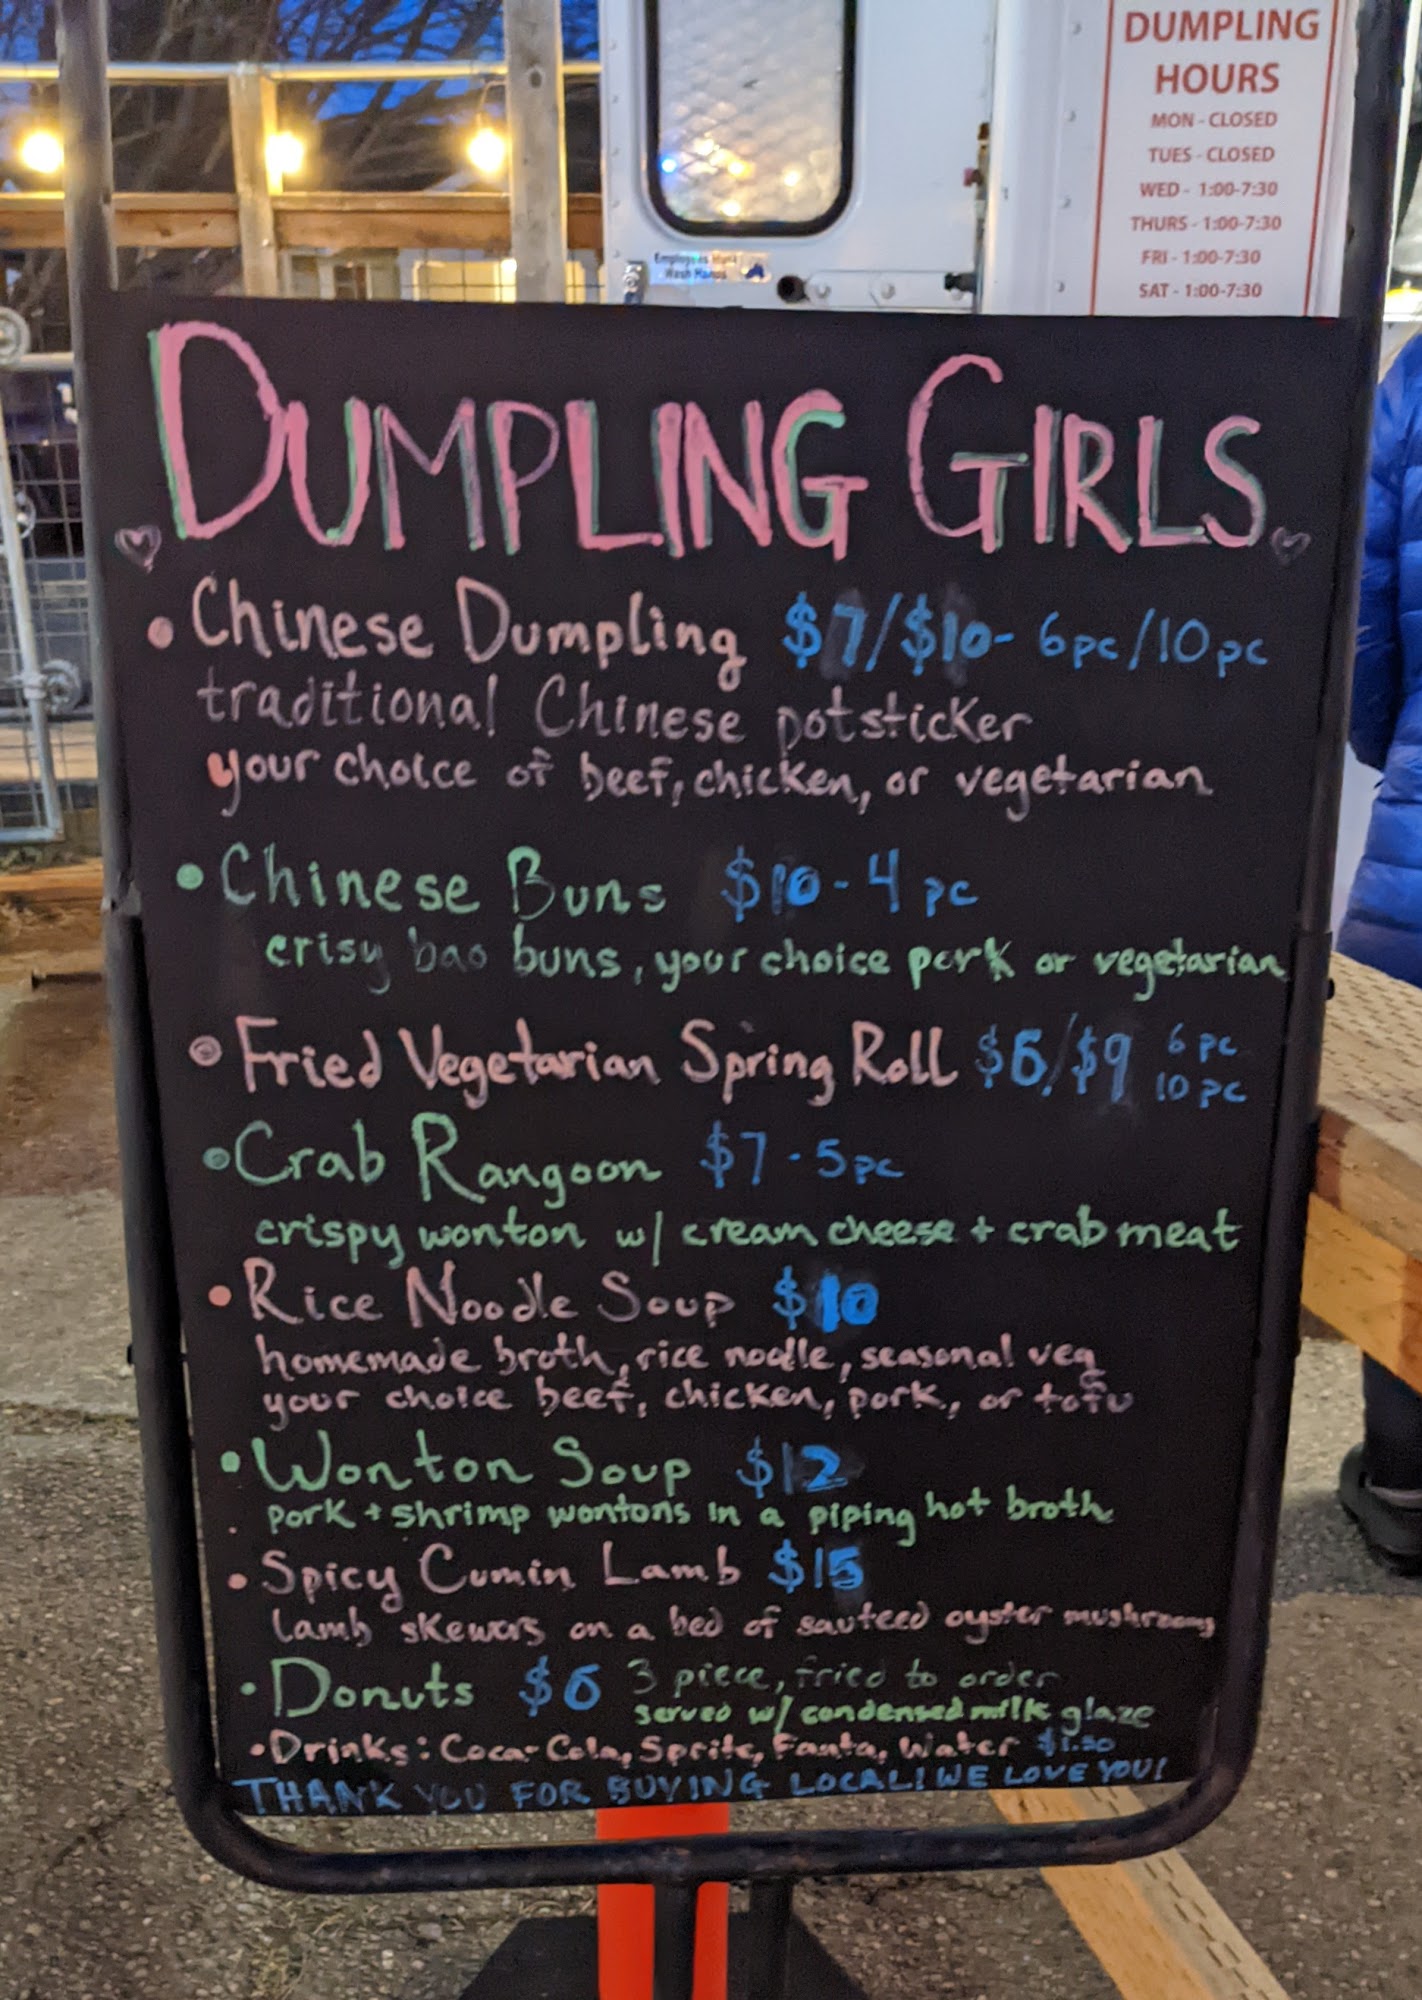 DUMPLING
HOURS
MON - CLOSED
TUES - CLOSED
WED - 1:00-7:30
THURS - 1:00-7:30
FRI - 1:00-7:30
SAT - 1:00-7:30
Employees Must
Wash Hands
DUMPLING GIRLS
• Chinese Dumpling $7/$10- 6pc/10pc
traditional Chinese potsticker
your choice of beef, chicken, or vegetarian
• Chinese Buns $10 - 4 pc
crisy bao buns, your choice pork or vegetarian
• Fried Vegetarian Spring Roll $6/$9 6 pc
10 pc
• Crab Rangoon $7 - 5pc
crispy wonton w/ cream cheese + crab meat
• Rice Noodle Soup $10
homemade broth, rice noodle, seasonal veg
your choice beef, chicken, pork, or tofu
• Wonton Soup $12
pork + shrimp wontons in a piping hot broth
• Spicy Cumin Lamb $15
lamb skewers on a bed of sauteed oyster mushrooms
• Donuts $6 3 piece, fried to order
served w/ condensed milk glaze
• Drinks: Coca-Cola, Sprite, Fanta, Water $1.50
THANK YOU FOR BUYING LOCAL! WE LOVE YOU!